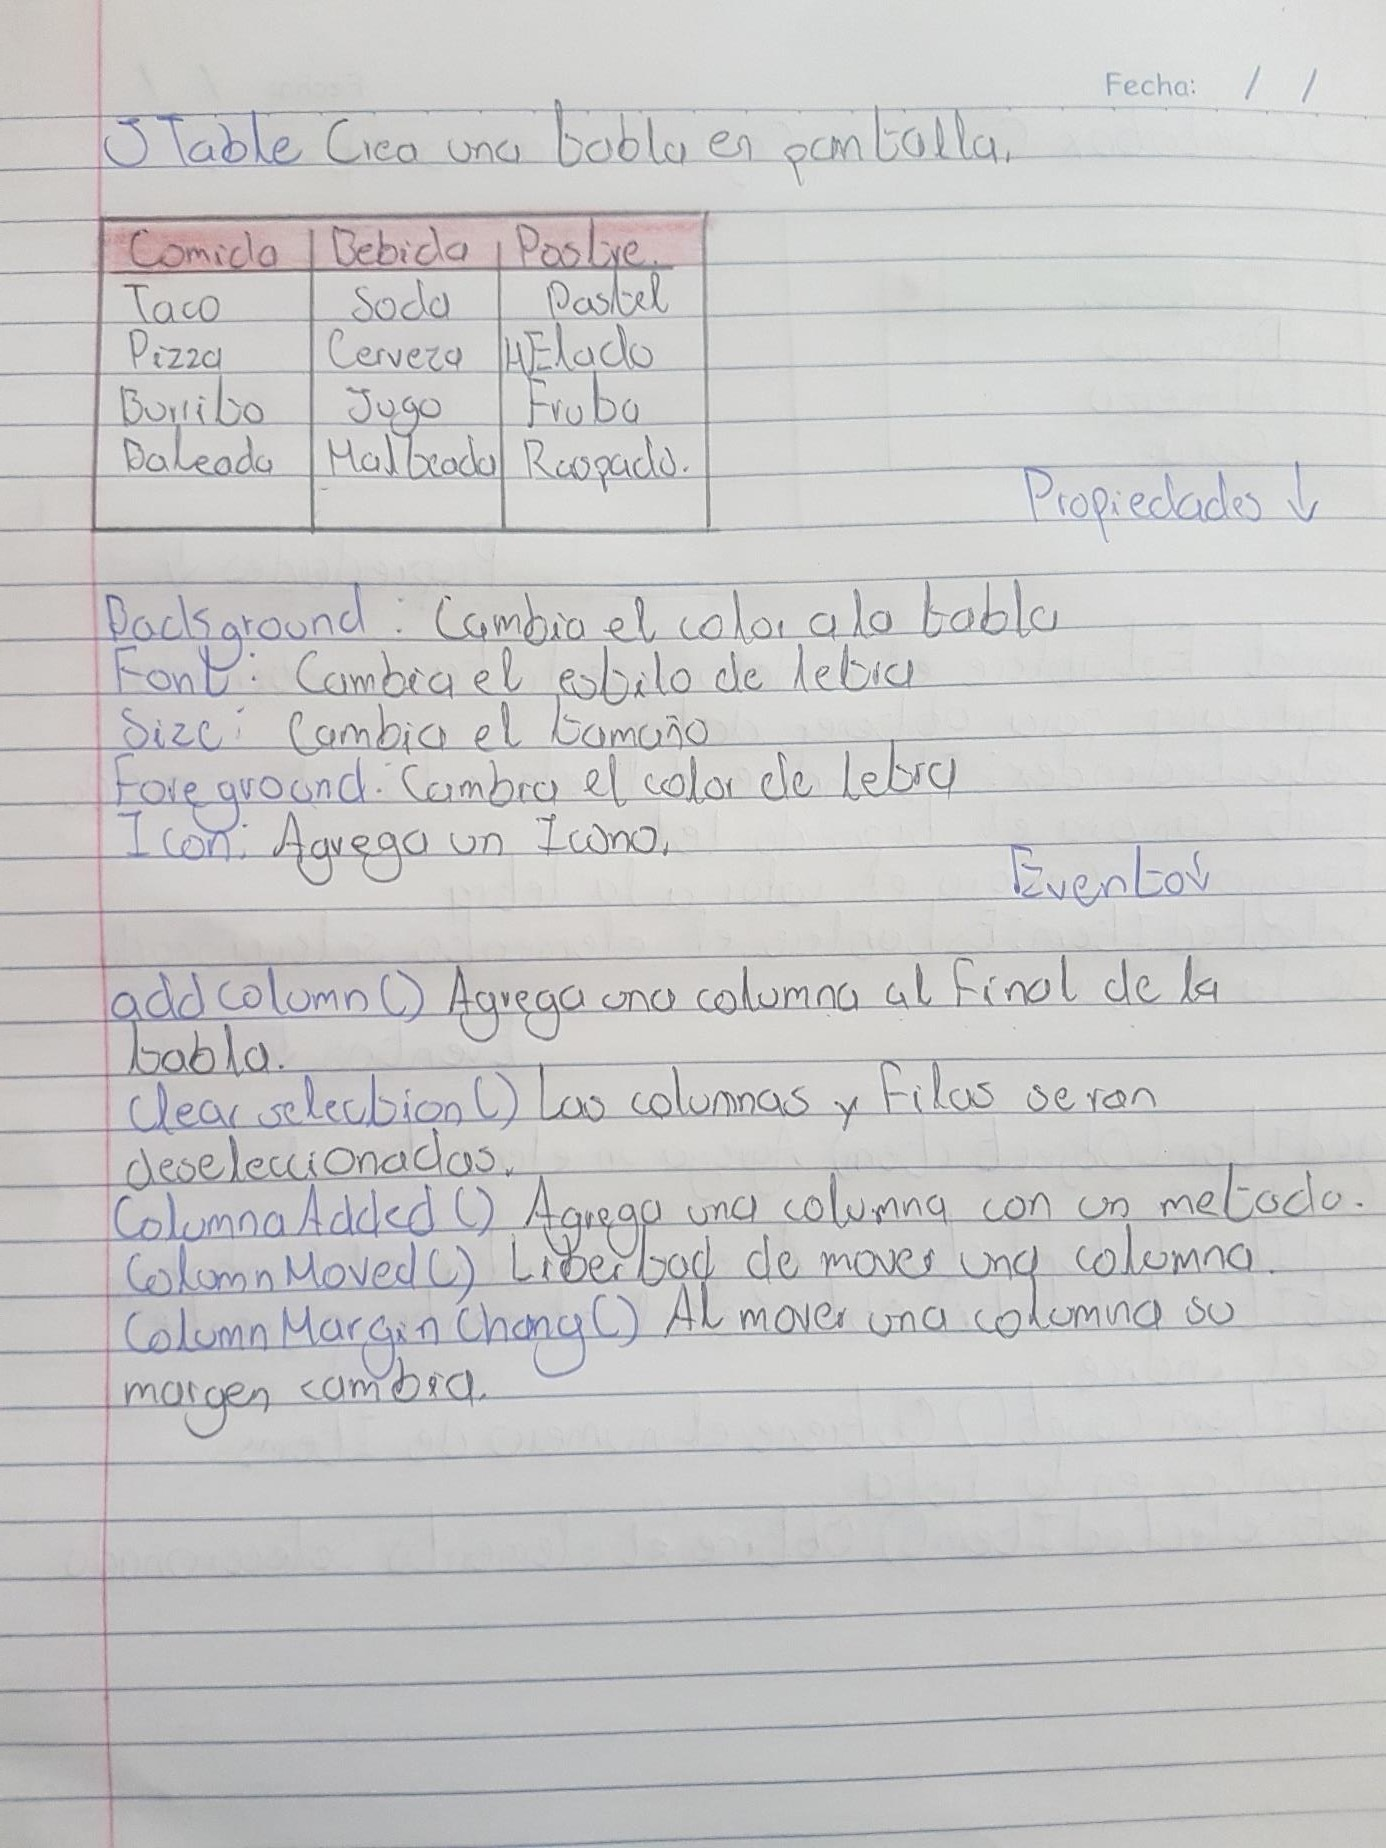 Fecha: / /
JTable Crea una tabla en pantalla.
Comida Bebida Postre.
Taco Soda Pastel
Pizza Cerveza HElado
Burrito Jugo Fruta
Baleada Malteada Raspado.
Propiedades ↓
Background: Cambia el color a la tabla
Font: Cambia el estilo de letra
Size: Cambia el tamaño
Foreground: Cambia el color de letra
Icon: Agrega un Icono.
Eventos↓
addColumn() Agrega una columna al final de la
tabla.
Clear selection() Las columnas y filas seran
deseleccionadas.
ColumnaAdded() Agrega una columna con un metodo.
ColumnMoved() Libertad de mover una columna.
ColumnMarginChang() Al mover una columna su
margen cambia.